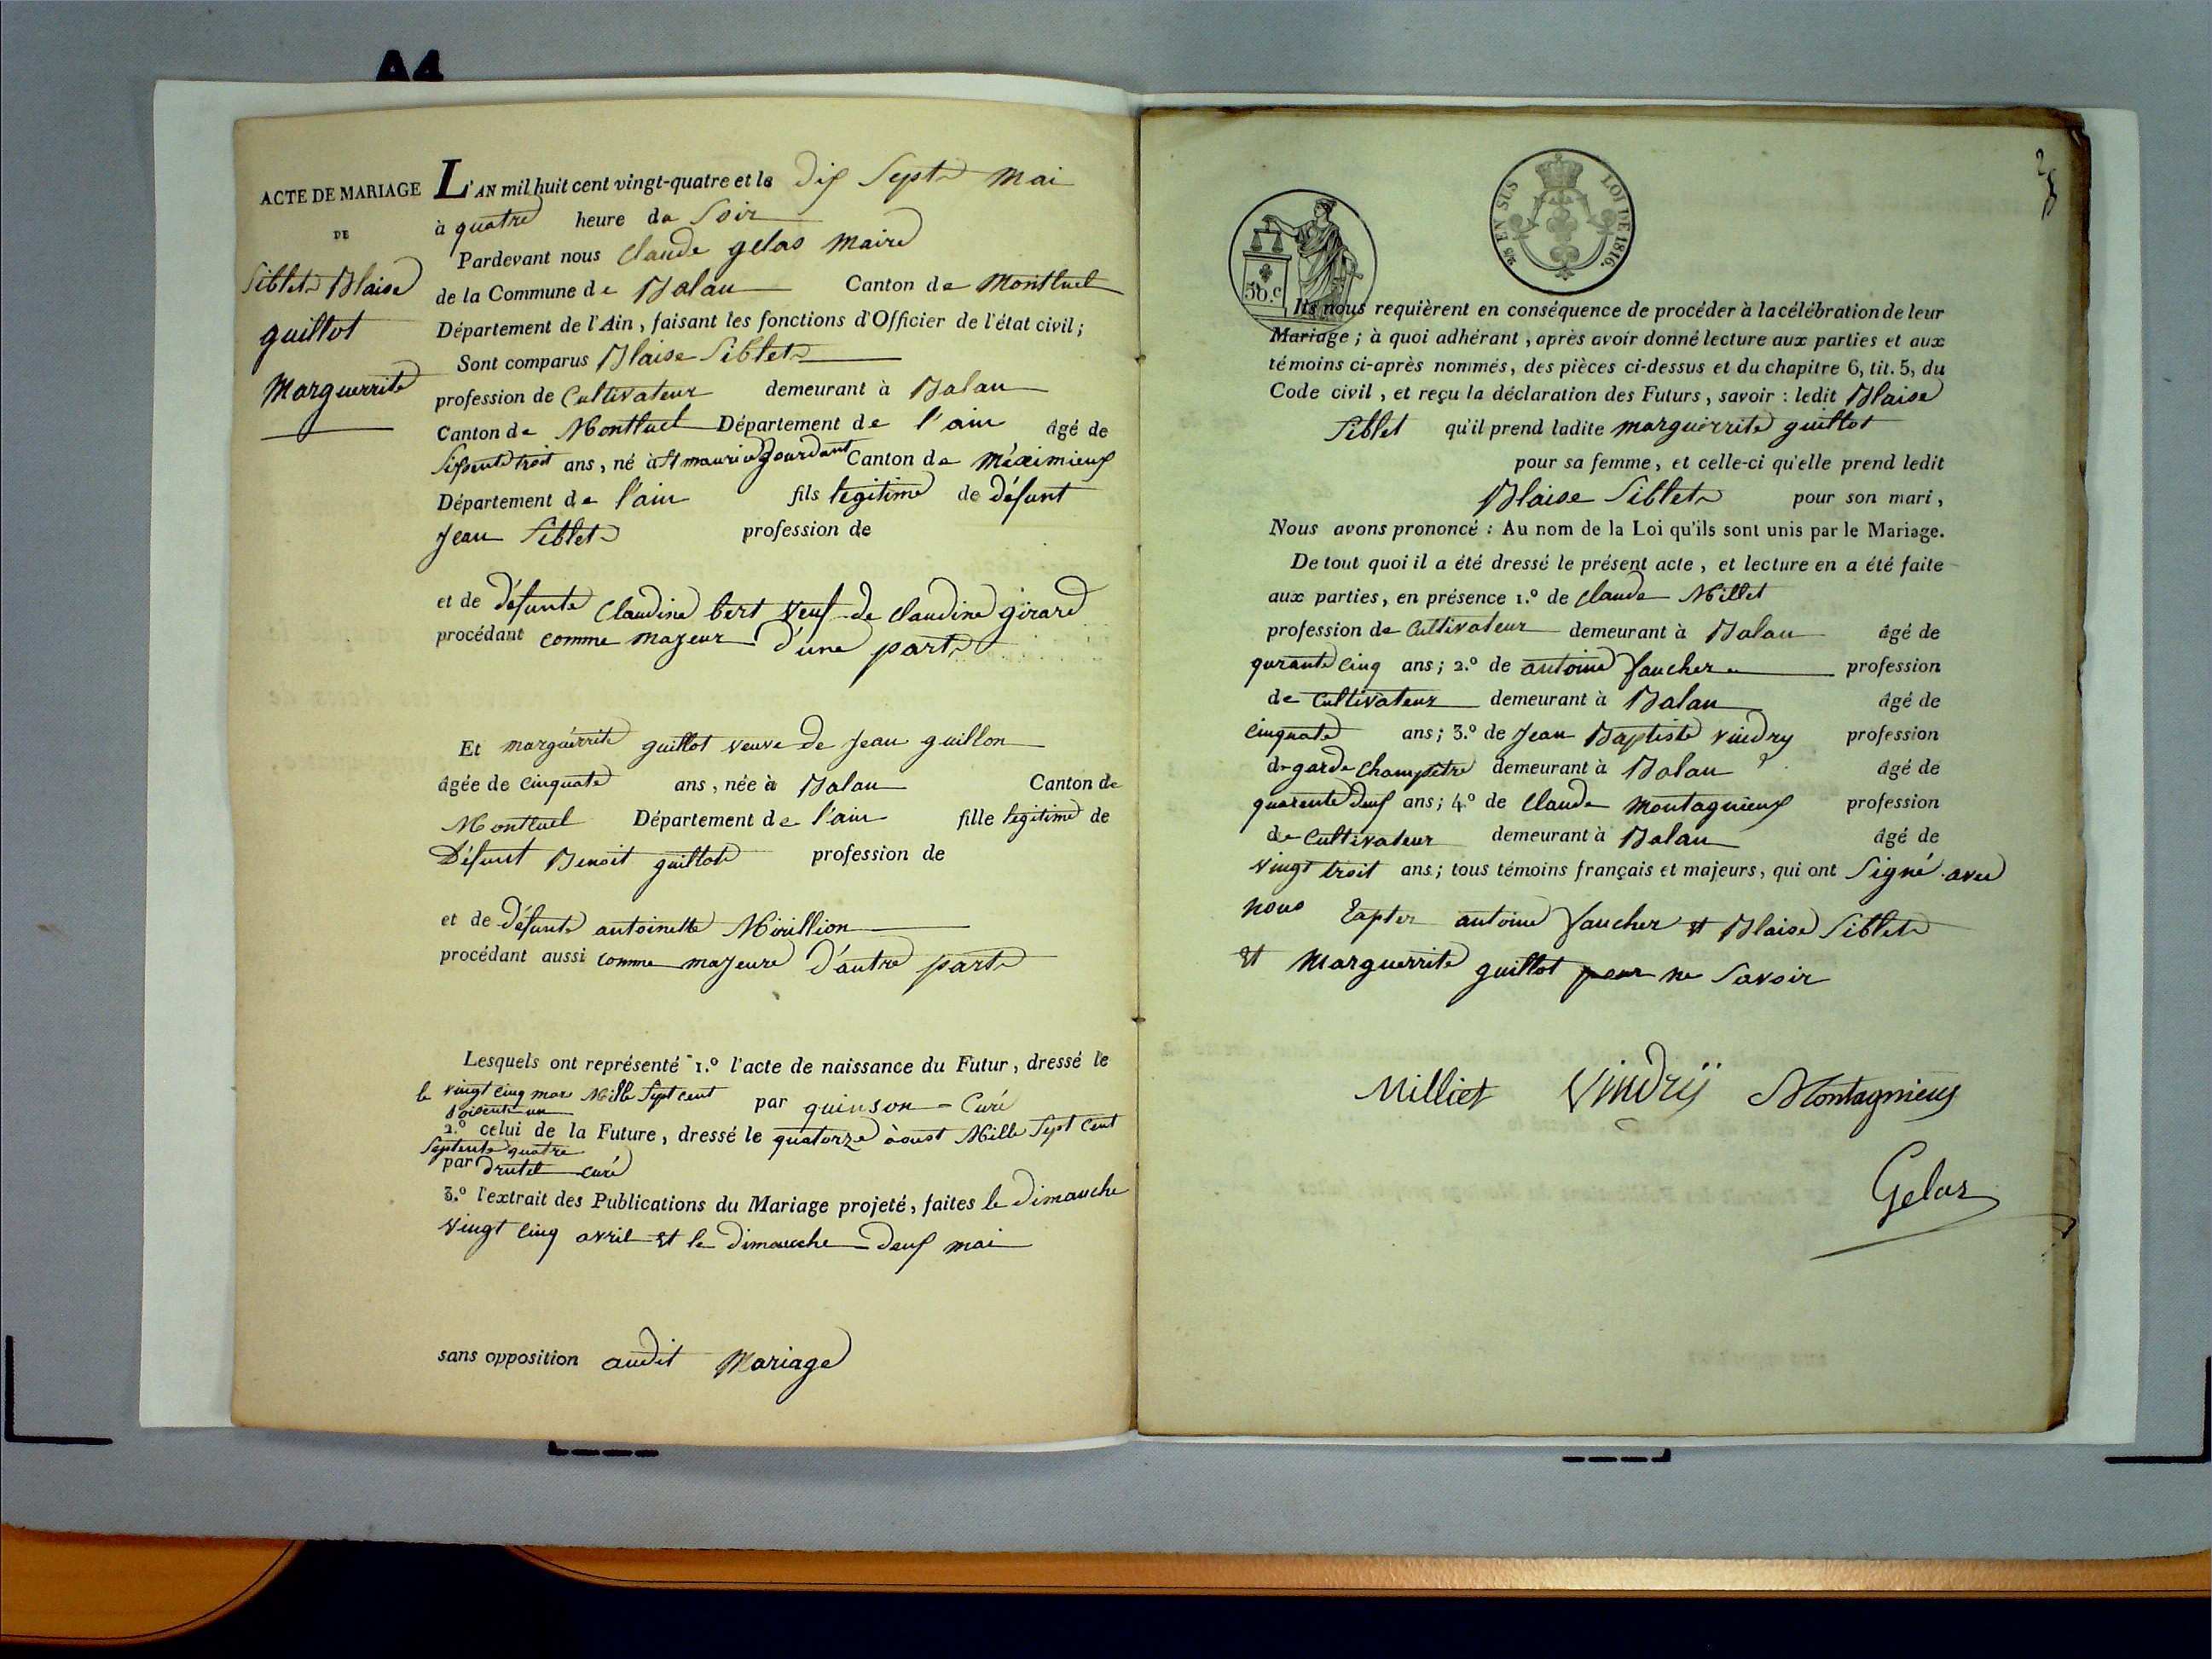 A4
ACTE DE MARIAGE
DE
Siblet Blaise
guillot
Marguerrite
L'AN mil huit cent vingt-quatre et le dix Sept Mai
à quatre heure du Soir
Pardevant nous Claude gelas Maire
de la Commune de Balan Canton de Montluel
Département de l'Ain, faisant les fonctions d'Officier de l'état civil;
Sont comparus Blaise Siblet
profession de Cultivateur demeurant à Balan
Canton de Montluel Département de l'ain âgé de
ans, né à St maurice gourdant Canton de Méximieux
Département de l'ain fils légitime de défunt
Jean Siblet profession de
et de défunte Claudine bert Veuf de Claudine girard
procédant comme majeur d'une part
Et marguérrite guillot veuve de Jean guillon
âgée de cinquate ans, née à Balan Canton de
Montluel Département de l'ain fille légitime de
Défunt Benoit guillot profession de
et de défunte antoinette
procédant aussi comme majeure d'autre part
Lesquels ont représenté 1.º l'acte de naissance du Futur, dressé le
le vingt cinq mars Mille Sept cent par quinson Curé
soisente un
2.º celui de la Future, dressé le quatorze àoust Mille Sept Cent
Septente quatre
par drutel curé
3.º l'extrait des Publications du Mariage projeté, faites le dimanche
vingt cinq avril et le dimanche deux mai
sans opposition audit Mariage
2
25 EN SUS LOI DE 1816.
50.c
Ils nous requièrent en conséquence de procéder à la célébration de leur
Mariage; à quoi adhérant, après avoir donné lecture aux parties et aux
témoins ci-après nommés, des pièces ci-dessus et du chapitre 6, tit. 5, du
Code civil, et reçu la déclaration des Futurs, savoir : ledit Blaise
Siblet qu'il prend ladite marguérrite guillot
pour sa femme, et celle-ci qu'elle prend ledit
Blaise Siblet pour son mari,
Nous avons prononcé : Au nom de la Loi qu'ils sont unis par le Mariage.
De tout quoi il a été dressé le présent acte, et lecture en a été faite
aux parties, en présence 1.º de Claude Millet
profession de Cultivateur demeurant à Balan âgé de
qurante cinq ans; 2.º de antoine Faucher profession
de Cultivateur demeurant à Balan âgé de
cinquate ans; 3.º de Jean Baptiste vindry profession
de garde Champêtre demeurant à Balan âgé de
quarente deux ans; 4.º de Claude Montagnieux profession
de Cultivateur demeurant à Balan âgé de
vingt troit ans; tous témoins français et majeurs, qui ont Signé avec
nous Exepter antoine Faucher et Blaise Siblet
et Marguerrite guillot pour ne Savoir
Milliet Vindry Montagnieux
Gelas